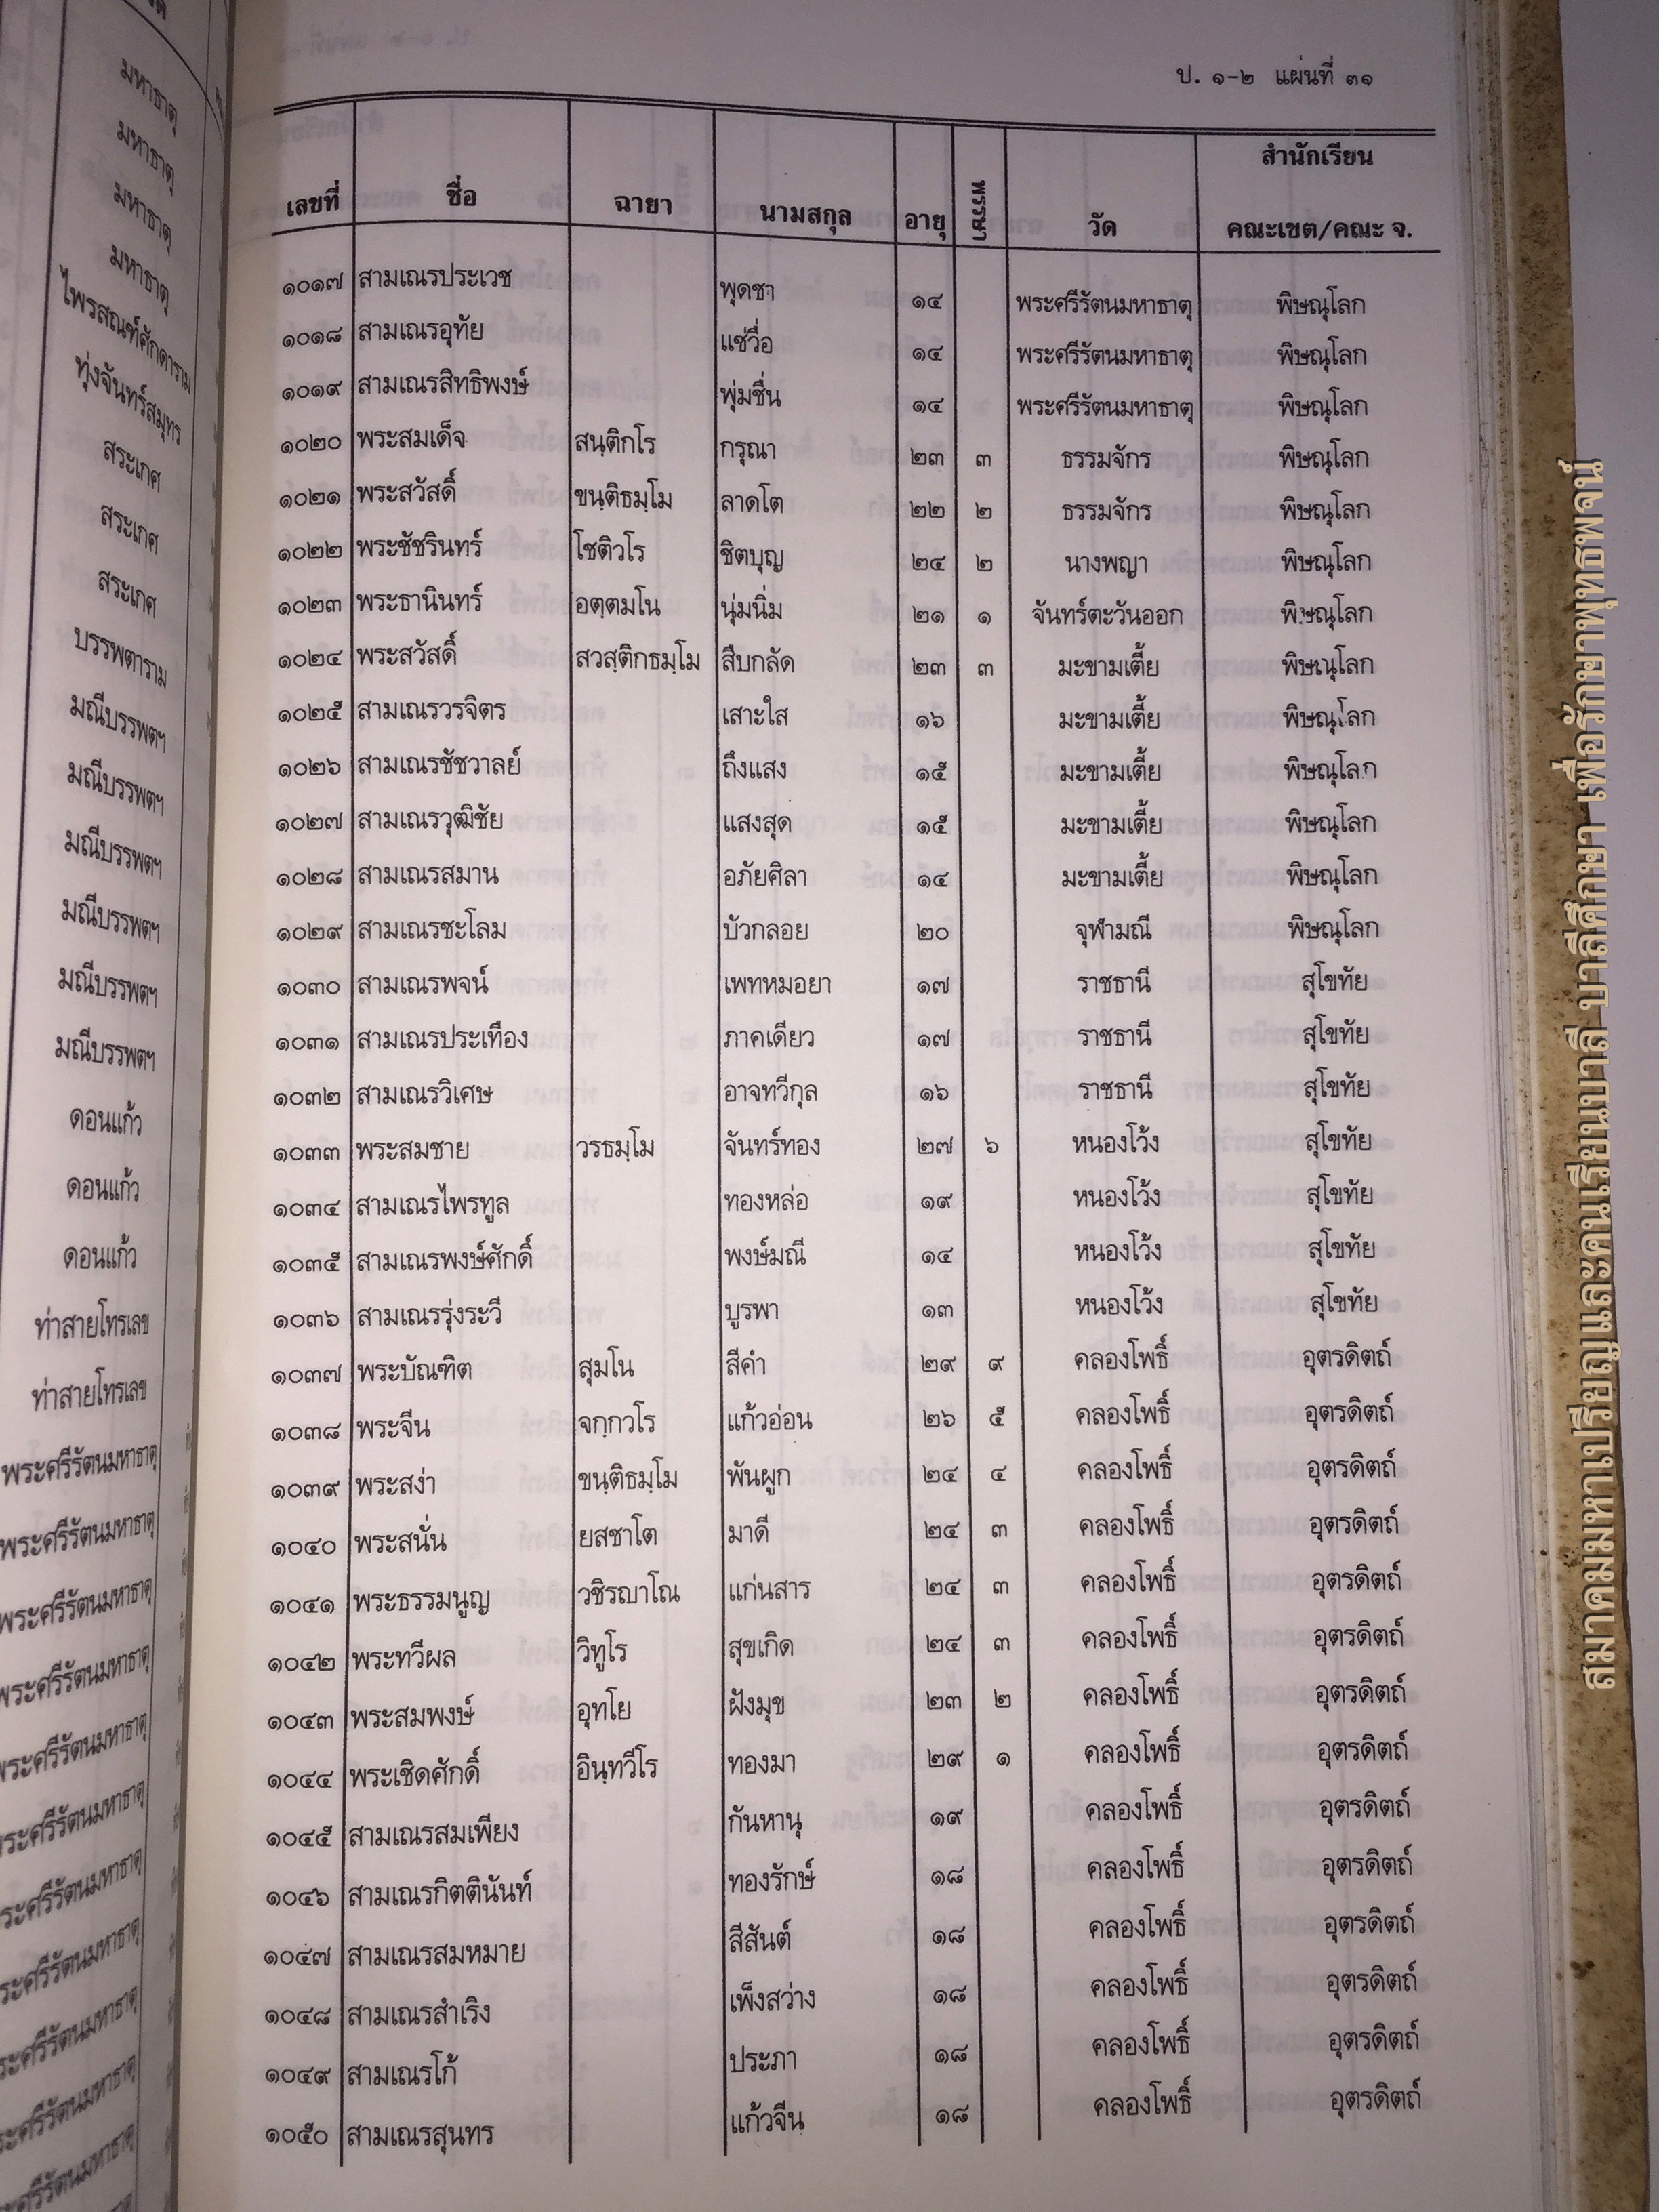 ป. ๑-๒ แผ่นที่ ๓๑
เลขที่ ชื่อ ฉายา นามสกุล อายุ พรรษา วัด สำนักเรียน คณะเขต/คณะ จ.
๑๐๑๗ สามเณรประเวช พุดชา ๑๔ พระศรีรัตนมหาธาตุ พิษณุโลก
๑๐๑๘ สามเณรอุทัย แซ่วื่อ ๑๔ พระศรีรัตนมหาธาตุ พิษณุโลก
๑๐๑๙ สามเณรสิทธิพงษ์ พุ่มชื่น ๑๔ พระศรีรัตนมหาธาตุ พิษณุโลก
๑๐๒๐ พระสมเด็จ สนฺติกโร กรุณา ๒๓ ๓ ธรรมจักร พิษณุโลก
๑๐๒๑ พระสวัสดิ์ ขนฺติธมฺโม ลาดโต ๒๒ ๒ ธรรมจักร พิษณุโลก
๑๐๒๒ พระชัชรินทร์ โชติวโร ชิตบุญ ๒๔ ๒ นางพญา พิษณุโลก
๑๐๒๓ พระธานินทร์ อตฺตมโน นุ่มนิ่ม ๒๑ ๑ จันทร์ตะวันออก พิษณุโลก
๑๐๒๔ พระสวัสดิ์ สวสฺติกธมฺโม สืบกลัด ๒๓ ๓ มะขามเตี้ย พิษณุโลก
๑๐๒๕ สามเณรวรจิตร เสาะใส ๑๖ มะขามเตี้ย พิษณุโลก
๑๐๒๖ สามเณรชัชวาลย์ ถึงแสง ๑๕ มะขามเตี้ย พิษณุโลก
๑๐๒๗ สามเณรวุฒิชัย แสงสุด ๑๕ มะขามเตี้ย พิษณุโลก
๑๐๒๘ สามเณรสมาน อภัยศิลา ๑๔ มะขามเตี้ย พิษณุโลก
๑๐๒๙ สามเณรชะโลม บัวกลอย ๒๐ จุฬามณี พิษณุโลก
๑๐๓๐ สามเณรพจน์ เพทหมอยา ๑๗ ราชธานี สุโขทัย
๑๐๓๑ สามเณรประเทือง ภาคเดียว ๑๗ ราชธานี สุโขทัย
๑๐๓๒ สามเณรวิเศษ อาจทวีกุล ๑๖ ราชธานี สุโขทัย
๑๐๓๓ พระสมชาย วรธมฺโม จันทร์ทอง ๒๗ ๖ หนองโว้ง สุโขทัย
๑๐๓๔ สามเณรไพรทูล ทองหล่อ ๑๙ หนองโว้ง สุโขทัย
๑๐๓๕ สามเณรพงษ์ศักดิ์ พงษ์มณี ๑๔ หนองโว้ง สุโขทัย
๑๐๓๖ สามเณรรุ่งระวี บูรพา ๑๓ หนองโว้ง สุโขทัย
๑๐๓๗ พระบัณฑิต สุมโน สีคำ ๒๙ ๙ คลองโพธิ์ อุตรดิตถ์
๑๐๓๘ พระจีน จกฺกวโร แก้วอ่อน ๒๖ ๕ คลองโพธิ์ อุตรดิตถ์
๑๐๓๙ พระสง่า ขนฺติธมฺโม พันผูก ๒๔ ๔ คลองโพธิ์ อุตรดิตถ์
๑๐๔๐ พระสนั่น ยสชาโต มาดี ๒๔ ๓ คลองโพธิ์ อุตรดิตถ์
๑๐๔๑ พระธรรมนูญ วชิรญาโณ แก่นสาร ๒๔ ๓ คลองโพธิ์ อุตรดิตถ์
๑๐๔๒ พระทวีผล วิทูโร สุขเกิด ๒๔ ๓ คลองโพธิ์ อุตรดิตถ์
๑๐๔๓ พระสมพงษ์ อุทโย ฝังมุข ๒๓ ๒ คลองโพธิ์ อุตรดิตถ์
๑๐๔๔ พระเชิดศักดิ์ อินฺทวีโร ทองมา ๒๙ ๑ คลองโพธิ์ อุตรดิตถ์
๑๐๔๕ สามเณรสมเพียง กันหานุ ๑๙ คลองโพธิ์ อุตรดิตถ์
๑๐๔๖ สามเณรกิตตินันท์ ทองรักษ์ ๑๘ คลองโพธิ์ อุตรดิตถ์
๑๐๔๗ สามเณรสมหมาย สีสันต์ ๑๘ คลองโพธิ์ อุตรดิตถ์
๑๐๔๘ สามเณรสำเริง เพ็งสว่าง ๑๘ คลองโพธิ์ อุตรดิตถ์
๑๐๔๙ สามเณรโก้ ประภา ๑๘ คลองโพธิ์ อุตรดิตถ์
๑๐๕๐ สามเณรสุนทร แก้วจีน ๑๘ คลองโพธิ์ อุตรดิตถ์
มหาธาตุ
มหาธาตุ
มหาธาตุ
มหาธาตุ
ไพรสณฑ์ศักดาราม
ทุ่งจันทร์สมุทร
สระเกศ
สระเกศ
สระเกศ
บรรพตาราม
มณีบรรพตฯ
มณีบรรพตฯ
มณีบรรพตฯ
มณีบรรพตฯ
มณีบรรพตฯ
มณีบรรพตฯ
ดอนแก้ว
ดอนแก้ว
ดอนแก้ว
ท่าสายโทรเลข
ท่าสายโทรเลข
พระศรีรัตนมหาธาตุ
พระศรีรัตนมหาธาตุ
พระศรีรัตนมหาธาตุ
พระศรีรัตนมหาธาตุ
พระศรีรัตนมหาธาตุ
พระศรีรัตนมหาธาตุ
สมาคมมหาเปรียญและคนเรียนบาลี บาลีศึกษา เพื่อรักษาพุทธพจน์